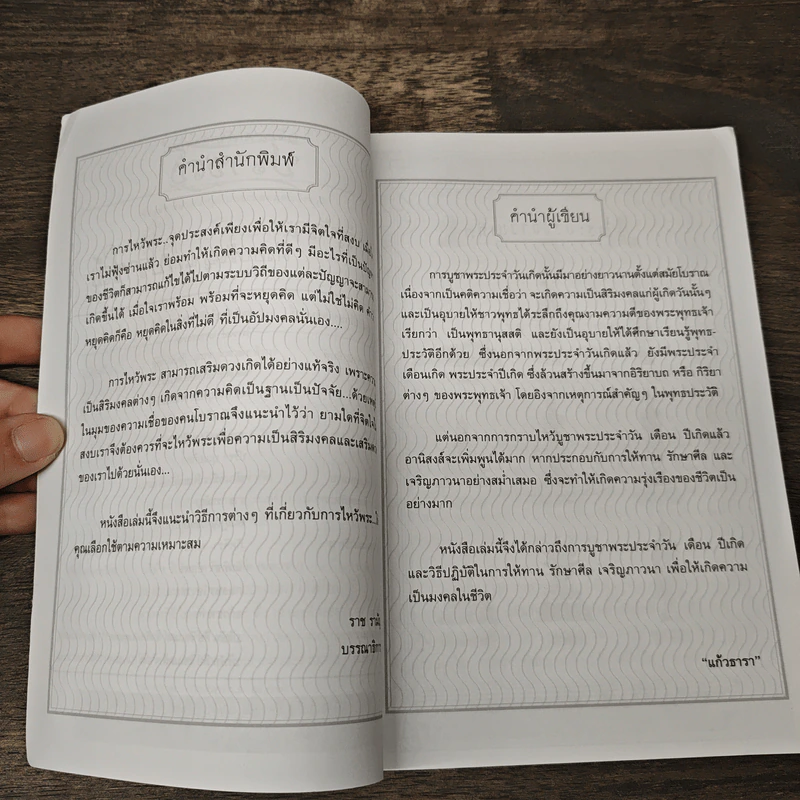 คำนำสำนักพิมพ์
การไหว้พระ..จุดประสงค์เพียงเพื่อให้เรามีจิตใจที่สงบ
เราไม่ฟุ้งซ่านแล้ว ย่อมทำให้เกิดความคิดที่ดีๆ มีอะไรที่เป็น
ของชีวิตก็สามารถแก้ไขได้ไปตามระบบวิถีของแต่ละปัญญาจะ
เกิดขึ้นได้ เมื่อใจเราพร้อม พร้อมที่จะหยุดคิด แต่ไม่ใช่ไม่คิด
หยุดคิดก็คือ หยุดคิดในสิ่งที่ไม่ดี ที่เป็นอัปมงคลนั่นเอง....
การไหว้พระ สามารถเสริมดวงเกิดได้อย่างแท้จริง เพราะ
เป็นสิริมงคลต่างๆ เกิดจากความคิดเป็นฐานเป็นปัจจัย...ด้วย
ในมุมของความเชื่อของคนโบราณจึงแนะนำไว้ว่า ยามใดที่จิตใจ
สงบเราจึงต้องควรที่จะไหว้พระเพื่อความเป็นสิริมงคลและเสริม
ของเราไปด้วยนั่นเอง...
หนังสือเล่มนี้จึงแนะนำวิธีการต่างๆ ที่เกี่ยวกับการไหว้พระ..
คุณเลือกใช้ตามความเหมาะสม
ราช
คำนำผู้เขียน
การบูชาพระประจำวันเกิดนั้นมีมาอย่างยาวนานตั้งแต่สมัยโบราณ
เนื่องจากเป็นคติความเชื่อว่า จะเกิดความเป็นสิริมงคลแก่ผู้เกิดวันนั้นๆ
และเป็นอุบายให้ชาวพุทธได้ระลึกถึงคุณงามความดีของพระพุทธเจ้า
เรียกว่า เป็นพุทธานุสสติ และยังเป็นอุบายให้ได้ศึกษาเรียนรู้พุทธ-
ประวัติอีกด้วย ซึ่งนอกจากพระประจำวันเกิดแล้ว ยังมีพระประจำ
เดือนเกิด พระประจำปีเกิด ซึ่งล้วนสร้างขึ้นมาจากอิริยาบถ หรือ กิริยา
ต่างๆ ของพระพุทธเจ้า โดยอิงจากเหตุการณ์สำคัญๆ ในพุทธประวัติ
แต่นอกจากการกราบไหว้บูชาพระประจำวัน เดือน ปีเกิดแล้ว
อานิสงส์จะเพิ่มพูนได้มาก หากประกอบกับการให้ทาน รักษาศีล และ
เจริญภาวนาอย่างสม่ำเสมอ ซึ่งจะทำให้เกิดความรุ่งเรืองของชีวิตเป็น
อย่างมาก
หนังสือเล่มนี้จึงได้กล่าวถึงการบูชาพระประจำวัน เดือน ปีเกิด
และวิธีปฏิบัติในการให้ทาน รักษาศีล เจริญภาวนา เพื่อให้เกิดความ
เป็นมงคลในชีวิต
“แก้วธารา”